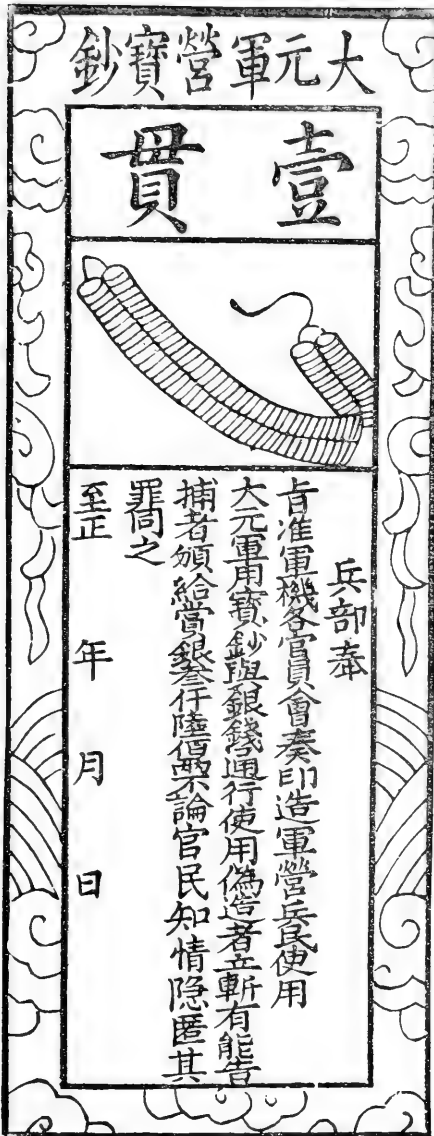 大元軍營寶鈔
壹貫
兵部奉
旨准軍機各官員會奏印造軍營兵民使用
大元軍用寶鈔與銀錢通行使用偽造者立斬有能告
捕者頒給賞銀叁仟陸佰兩不論官民知情隐匿其
罪同之
至正 年 月 日